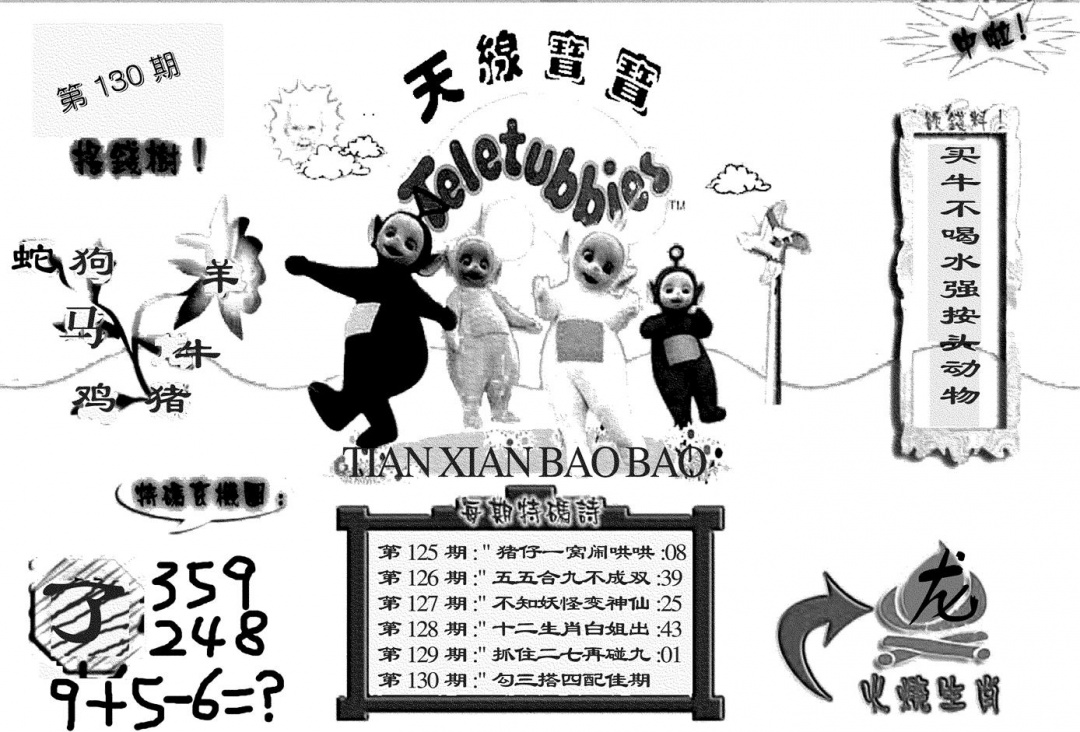 第 130 期
中啦!
天線寶寶
摇錢樹!
Teletubbies
TM
蛇 狗
羊
马
牛
鸡 猪
钱料!
买牛不喝水强按头动物
TIAN XIAN BAO BAO
特碼玄機圖:
每期特碼詩
第 125 期:" 猪仔一窝闹哄哄 :08
第 126 期:" 五五合九不成双 :39
第 127 期:" 不知妖怪变神仙 :25
第 128 期:" 十二生肖白姐出 :43
第 129 期:" 抓住二七再碰九 :01
第 130 期:" 勾三搭四配佳期
了
359
248
9+5-6=?
龙
火燒生肖